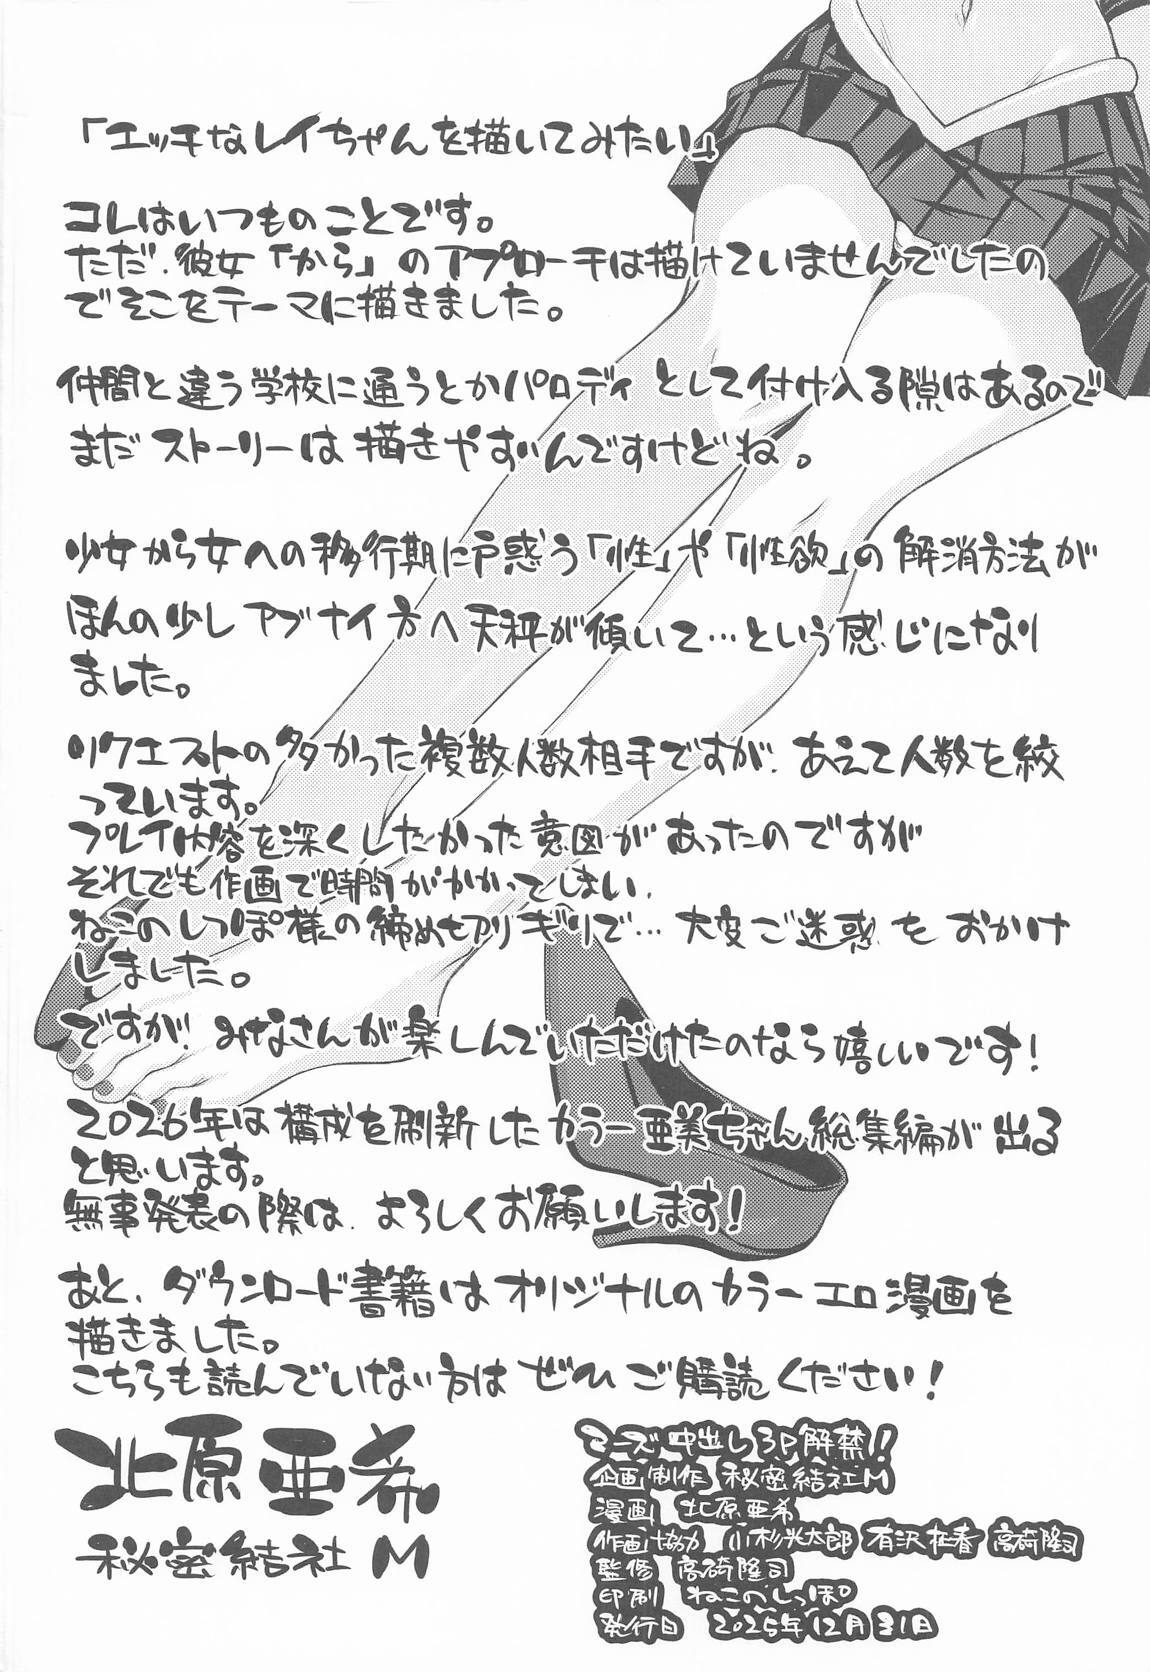 「エッチなレイちゃんを描いてみたい」
コレはいつものことです。
ただ、彼女「から」のアプローチは描けていませんでしたの
でそこをテーマに描きました。
仲間と違う学校に通うとかパロディとして付け入る隙はあるので
まだストーリーは描きやすいんですけどね。
少女から女への移行期に戸惑う「性」や「性欲」の解消方法が
ほんの少しアブナイ方へ天秤が傾いて…という感じになり
ました。
リクエストの多かった複数人数相手ですが、あえて人数を絞
っています。
プレイ内容を深くしたかった意図があったのですが
それでも作画で時間がかかってしまい、
ねこのしっぽ様の締め切りギリで…大変ご迷惑をおかけ
しました。
ですが、みなさんが楽しんでいただけたのなら嬉しいです!
2026年は構成を刷新したカラー亜美ちゃん総集編が出る
と思います。
無事発表の際は、よろしくお願いします!
あと、ダウンロード書籍はオリジナルのカラーエロ漫画を
描きました。
こちらも読んでいない方はぜひご購読ください!
北原亜希
秘密結社M
中出し3P解禁!!
企画制作 秘密結社M
漫画 北原亜希
作画協力 小杉光太郎 有沢 高崎隆司
監修 高崎隆司
印刷 ねこのしっぽ
発行日 2025年12月31日